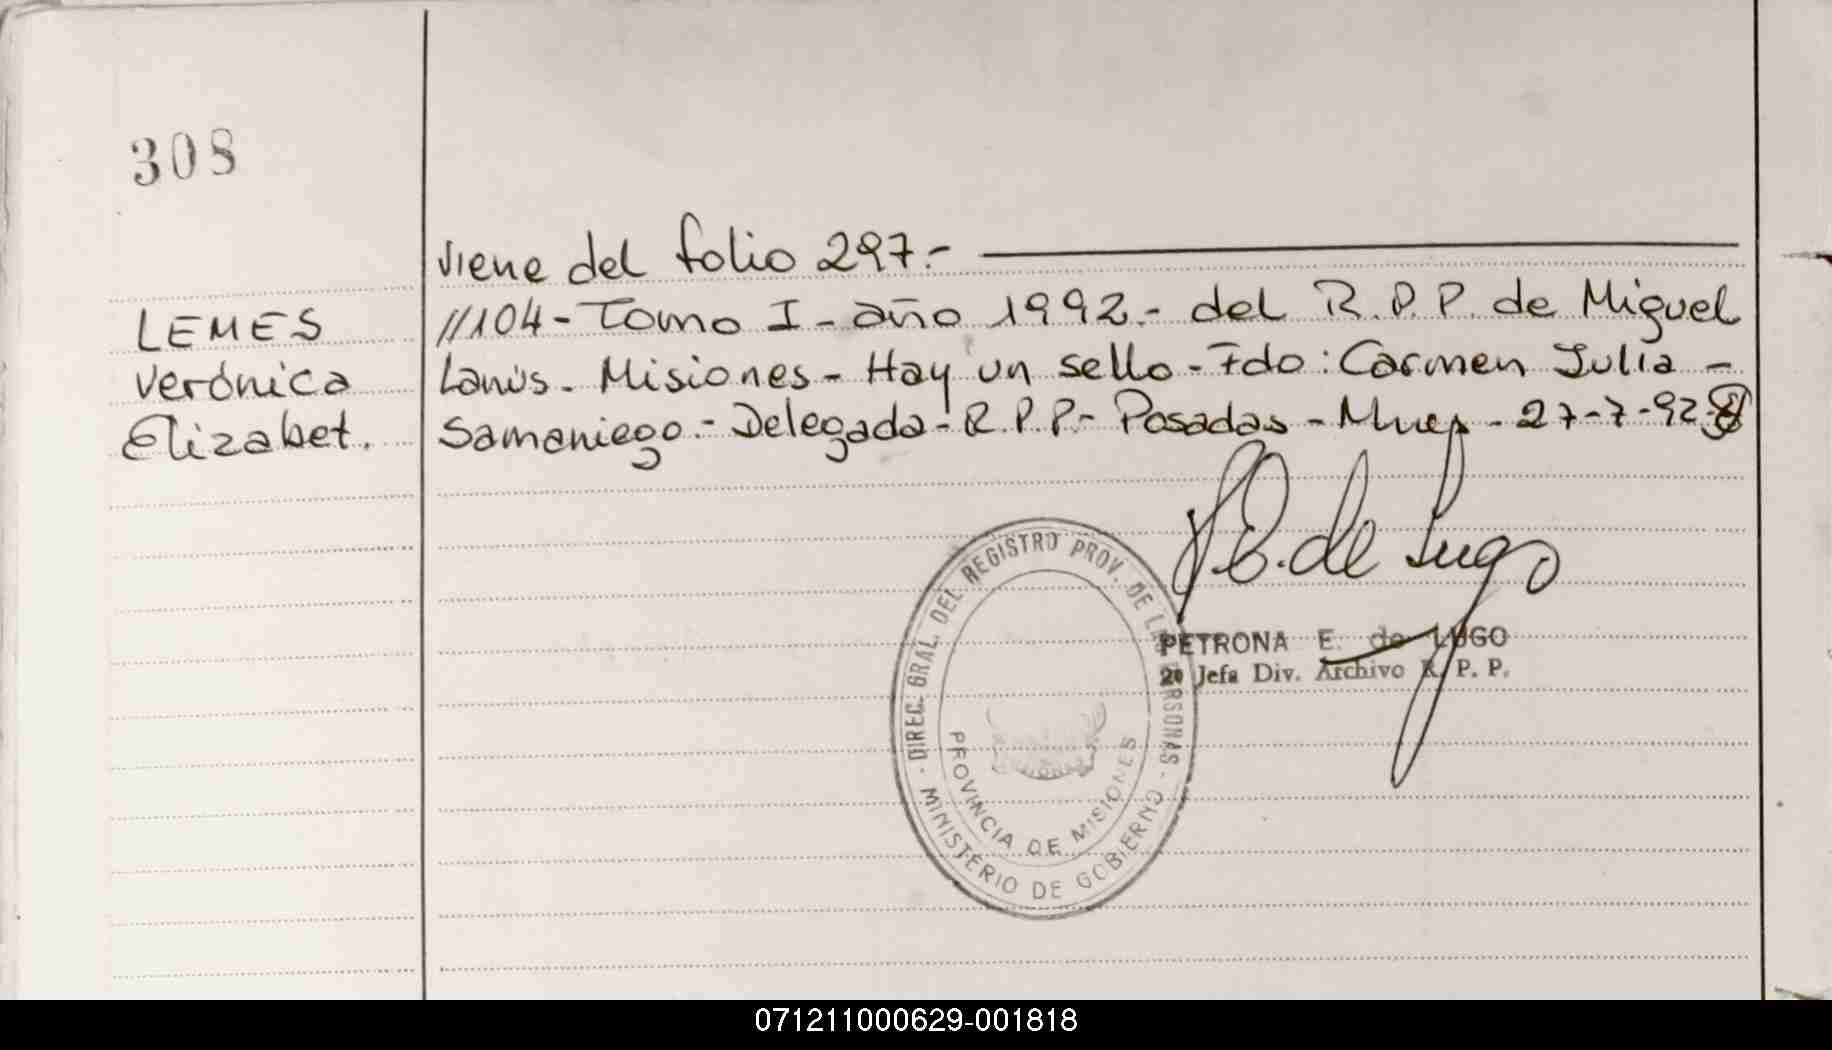 308
LEMES
Verónica
Elizabet.
viene del folio 297.-
//104 - Tomo I - año 1992.- del R.P.P. de Miguel
Lanús - Misiones - Hay un sello - Fdo: Carmen Julia -
Samaniego.- Delegada - R.P.P.- Posadas - Mnes - 27-7-92.-
P.E. de Lugo
PETRONA E. de LUGO
2º Jefa Div. Archivo R. P. P.
DIREC. GRAL. DEL REGISTRO PROV. DE LAS PERSONAS -
PROVINCIA DE MISIONES
MINISTERIO DE GOBIERNO
071211000629-001818